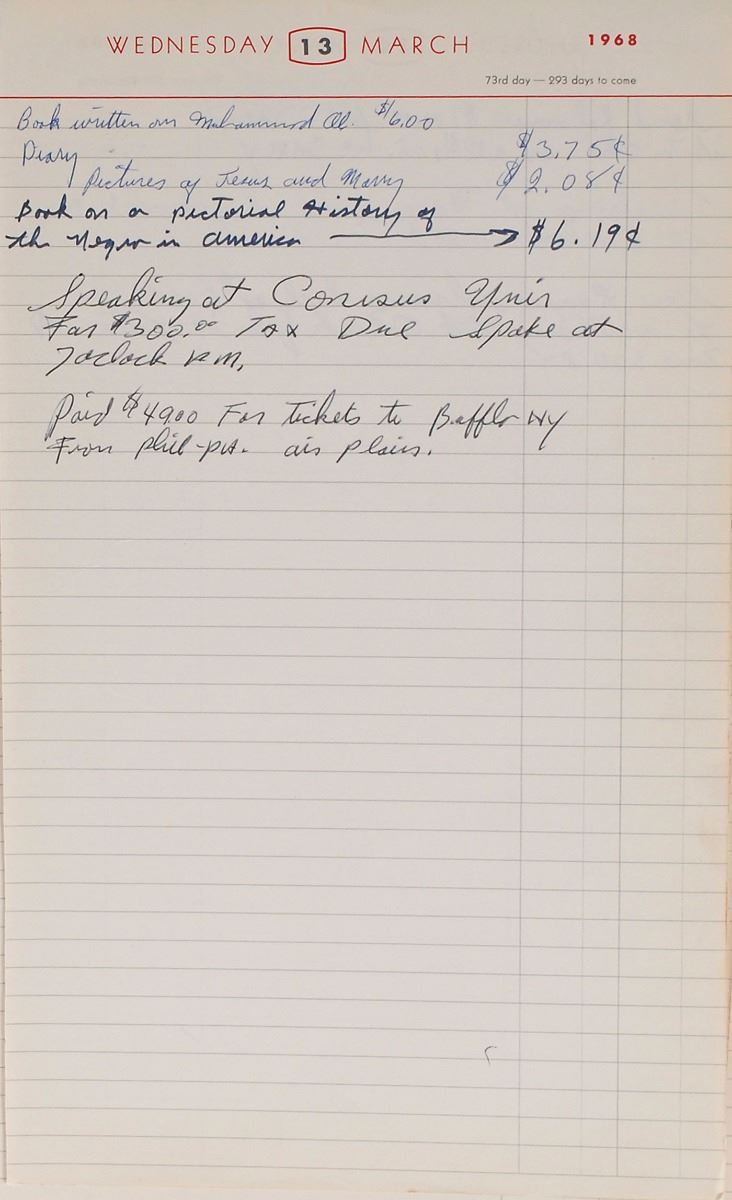 WEDNESDAY 13 MARCH 1968
73rd day — 293 days to come
Book written on Muhammad Ali. $6.00
Diary $3.75¢
Pictures of Jesus and Marry $2.08¢
Book on a pictorial History of
the Negro in america $6.19¢
Speaking at Conisus
For $300.00 Tax Due Spoke at
7oclock P.M.
Paid $4900 For tickets to Bufflo NY
From phil-pa. air plain.